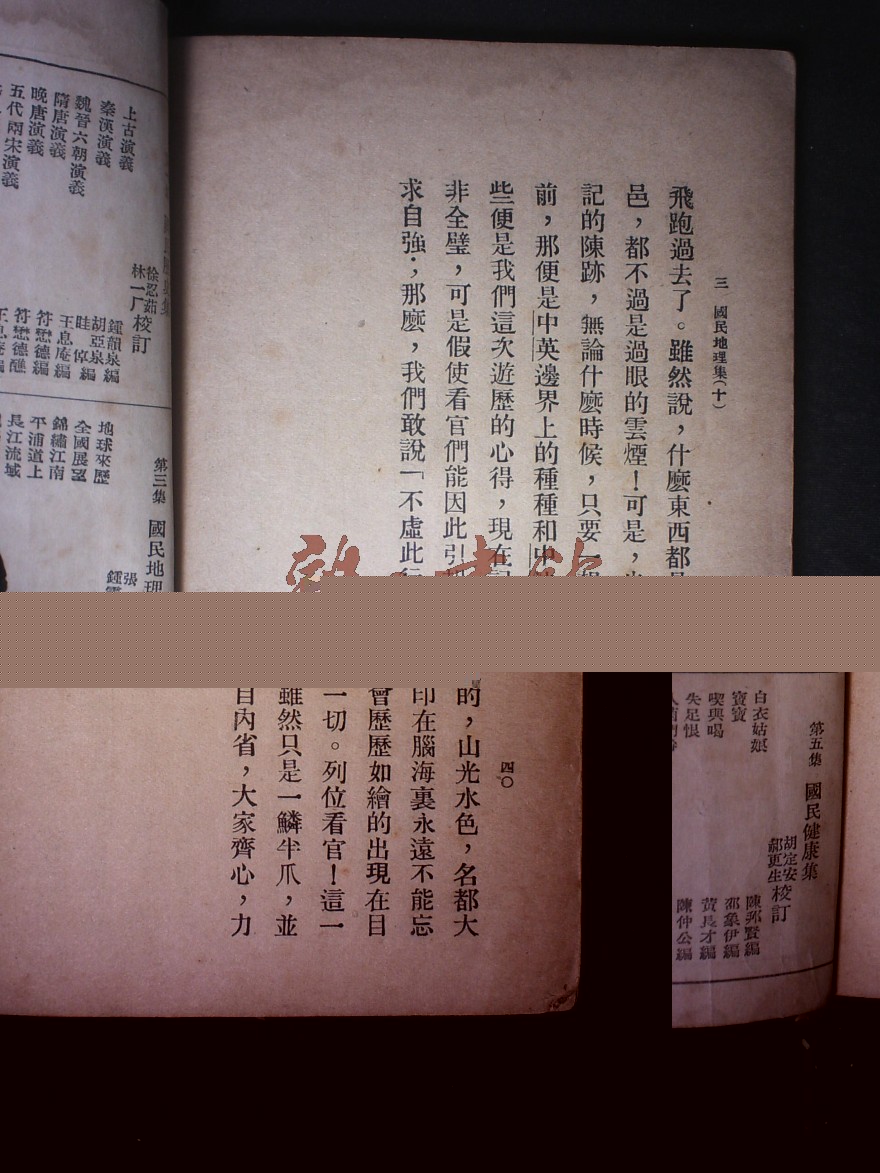 三 國民地理集(十)
飛跑過去了。雖然說，什麼東西都
邑，都不過是過眼的雲煙！可是，
記的陳跡，無論什麼時候，只要一
前，那便是中英邊界上的種種和中
些便是我們這次遊歷的心得，現在
非全璧，可是假使看官們能因此引
求自強；那麼，我們敢說「不虛此
上古演義
秦漢演義
魏晉六朝演義
隋唐演義
晚唐演義
五代兩宋演義
徐忍茹
林一厂 校訂
鍾韻泉編
胡亞泉編
眭倬編
王息庵編
符懋德編
符懋德
第三集 國民地理
地球來歷
全國展望
錦繡江南
平浦道上
長江流域
張
鍾
四〇
的，山光水色，名都大
印在腦海裏永遠不能忘
會歷歷如繪的出現在目
一切。列位看官！這一
雖然只是一鱗半爪，並
自內省，大家齊心，力
第五集 國民健康集
胡定安
郝更生 校訂
白衣姑娘
寶寶
喫與喝
失足恨
陳邦賢編
邵象伊編
黃長才編
陳仲公編